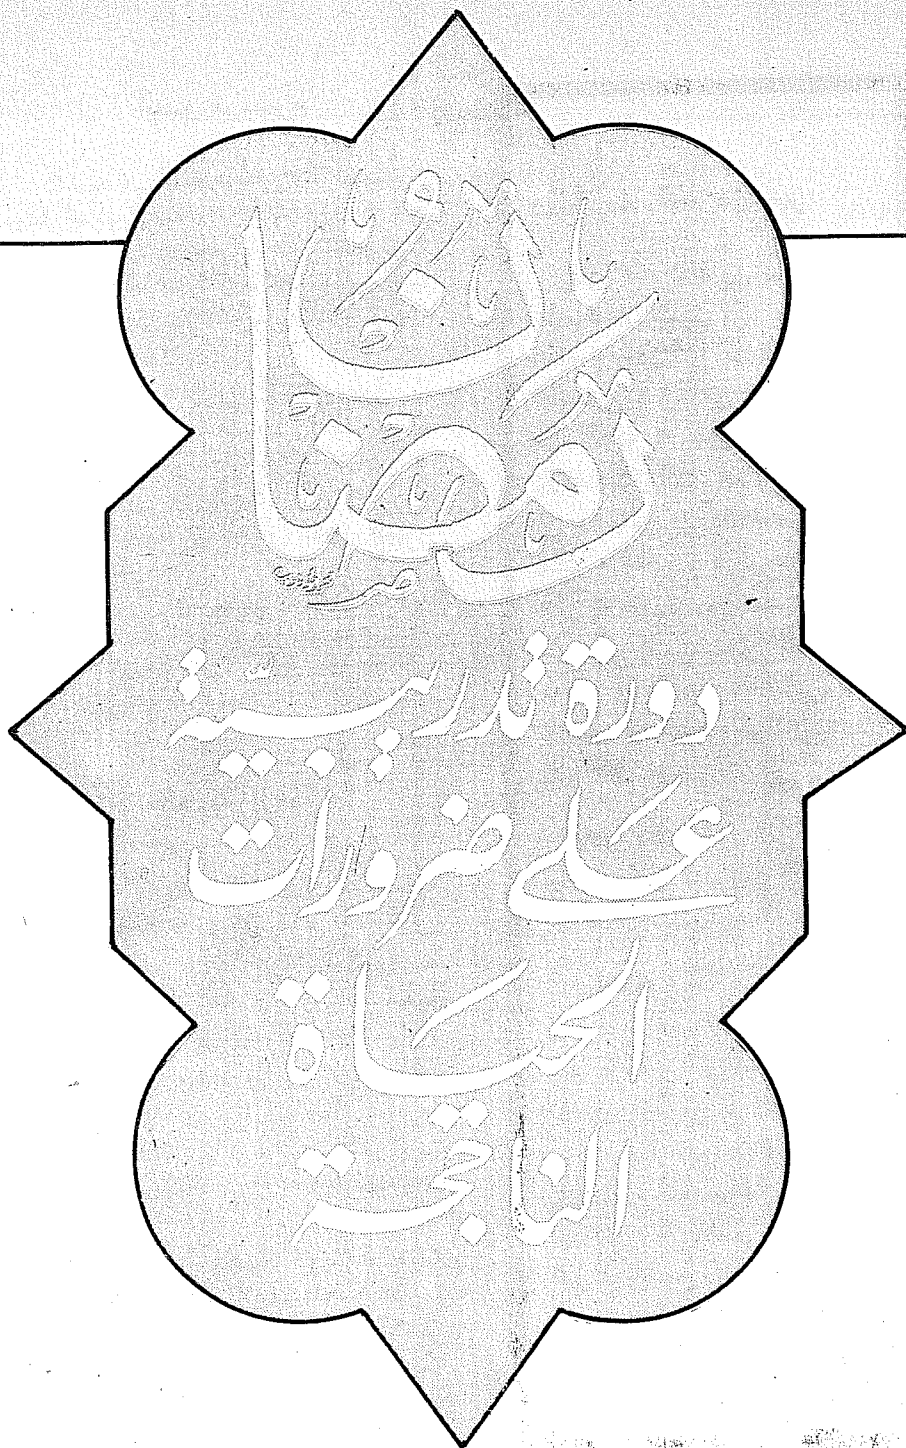 رمضان
دورة تدريبيّة
على ضرورات
الحياة
الناجحة